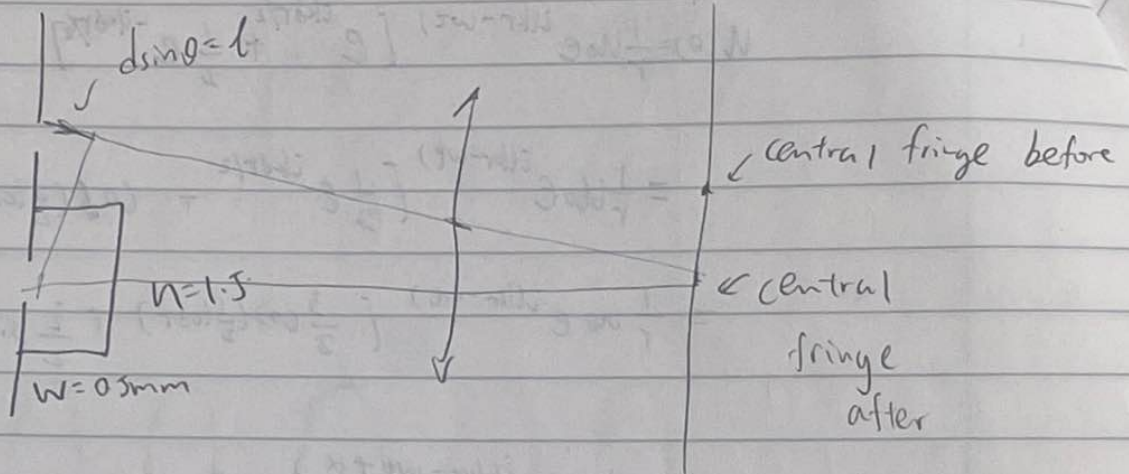 dsinθ = l
central fringe before
n=1.5
central
fringe
after
W= 0.5mm